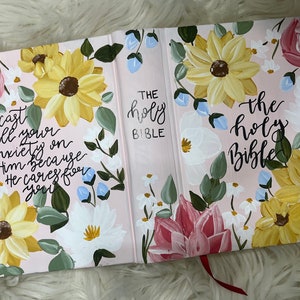 cast
all your
anxiety on
Him because
He cares for
you
THE
holy
BIBLE
the
holy
Bible